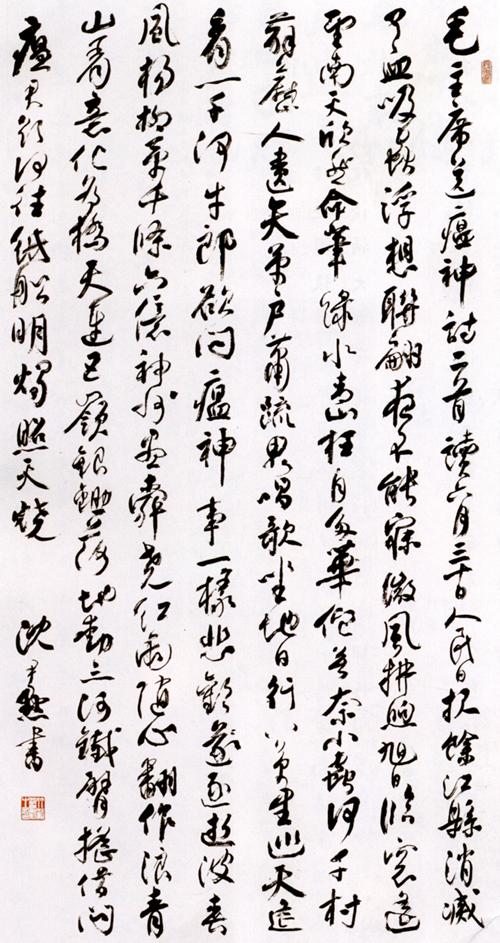 毛主席送瘟神詩二首讀六月三十日人民日报餘江縣消滅
了血吸虫浮想聯翩夜不能寐微風拂煦旭日臨窗遙
望南天欣然命筆綠水青山枉自多華佗無奈小蟲何千村
薜荔人遺矢萬户蕭疏鬼唱歌坐地日行八萬里巡天遙
看一千河牛郎欲问瘟神事一樣悲歡逐逝波春
風楊柳萬千條六億神州盡舜堯紅雨隨心翻作浪青
山着意化為橋天連五嶺銀鋤落地動三河鐵臂搖借问
瘟君欲何往纸船明燭照天燒
沈尹默書